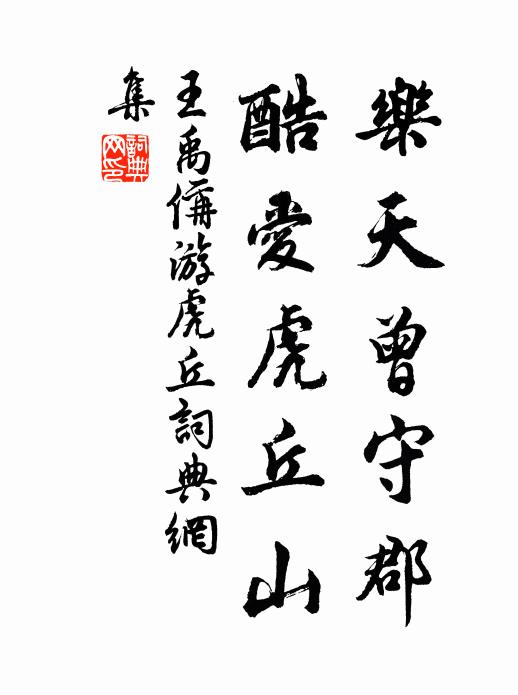 樂天曾守郡
酷愛虎丘山
王禹偁游虎丘詞典網
集
詞典
網印